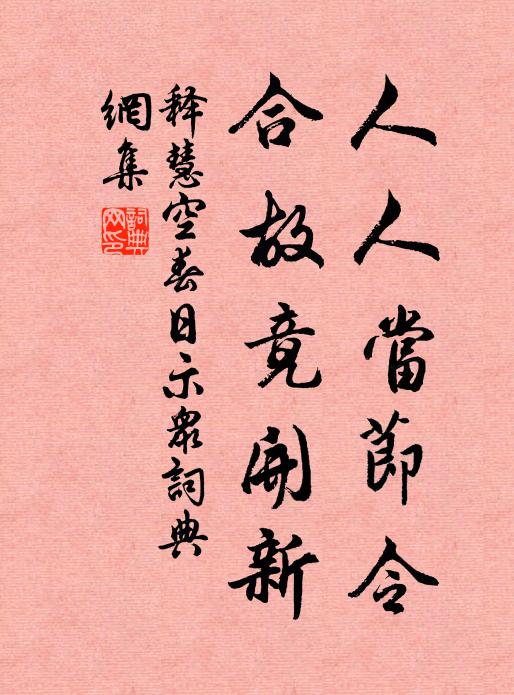 人人當節令
合故竟開新
释慧空春日示眾詞典
網集
詞典網印